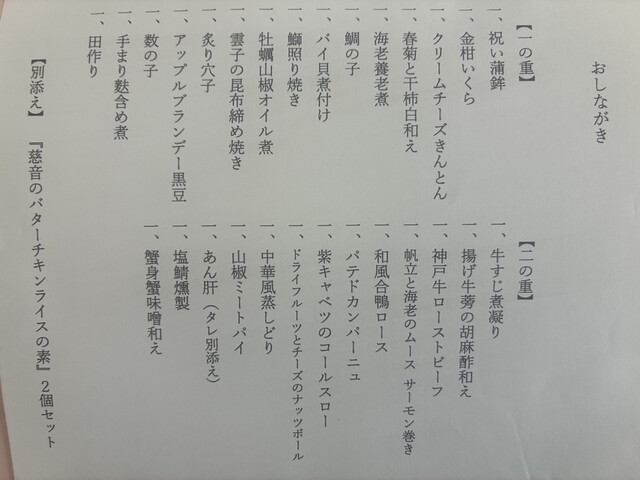 おしながき
【一の重】
一、祝い蒲鉾
一、金柑いくら
一、クリームチーズきんとん
一、春菊と干柿白和え
一、海老養老煮
一、鯛の子
一、バイ貝煮付け
一、鰤照り焼き
一、牡蠣山椒オイル煮
一、雲子の昆布締め焼き
一、炙り穴子
一、アップルブランデー黒豆
一、数の子
一、手まり麩含め煮
一、田作り
【二の重】
一、牛すじ煮凝り
一、揚げ牛蒡の胡麻酢和え
一、神戸牛ローストビーフ
一、帆立と海老のムース サーモン巻き
一、和風合鴨ロース
一、パテドカンパーニュ
一、紫キャベツのコールスロー
一、ドライフルーツとチーズのナッツボール
一、中華風蒸しどり
一、山椒ミートパイ
一、あん肝(タレ別添え)
一、塩鯖燻製
一、蟹身蟹味噌和え
【別添え】『慈音のバターチキンライスの素』2個セット